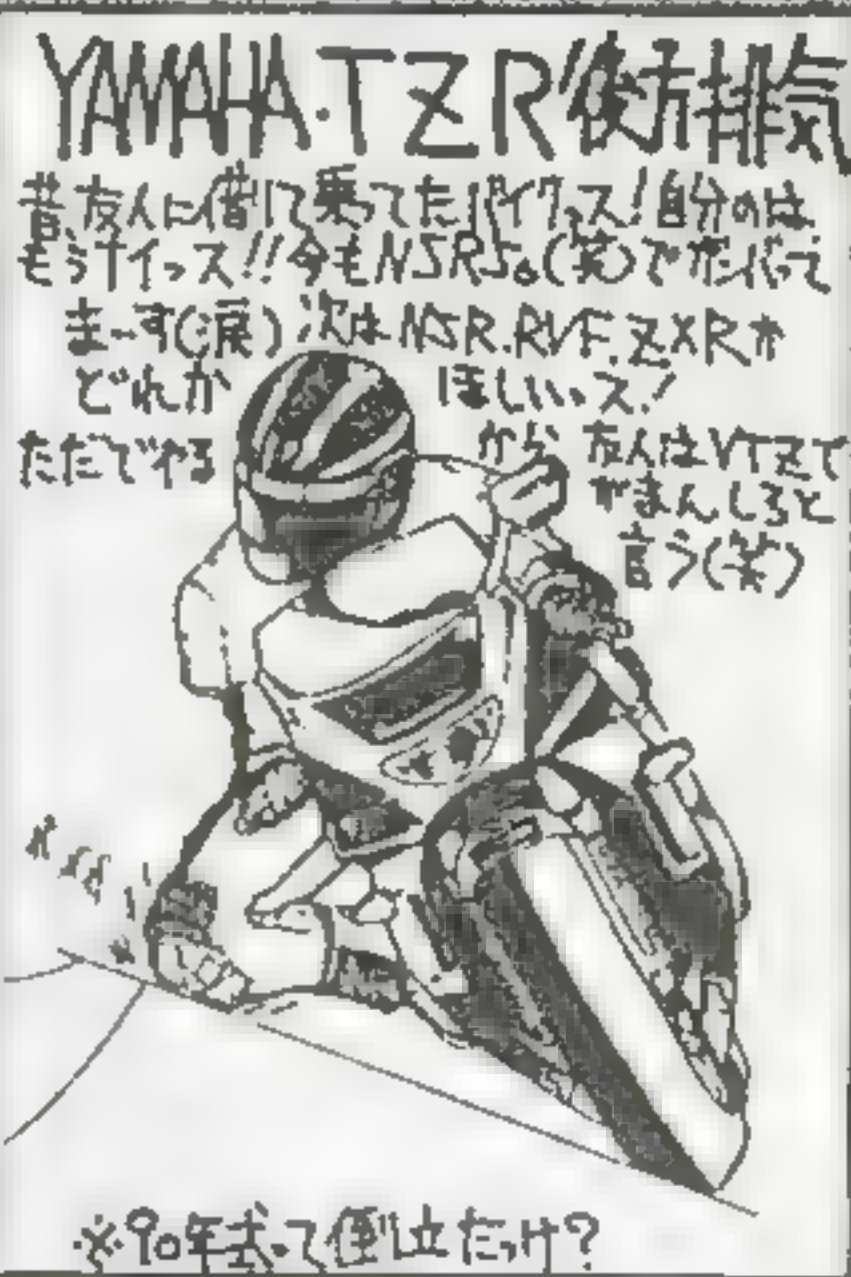 YAMAHA・TZR'後方排気
昔友人に借りて乗ってたバイクっス!自分のは
もうナイっス!!今もNSR50(笑)でガンバって
まーす(;涙)次はNSR.RVF.ZXRか
どれか ほしいっス!
ただでやるから 友人はVTZで
がまんしろと
言う(笑)
※90年式って倒立だっけ?